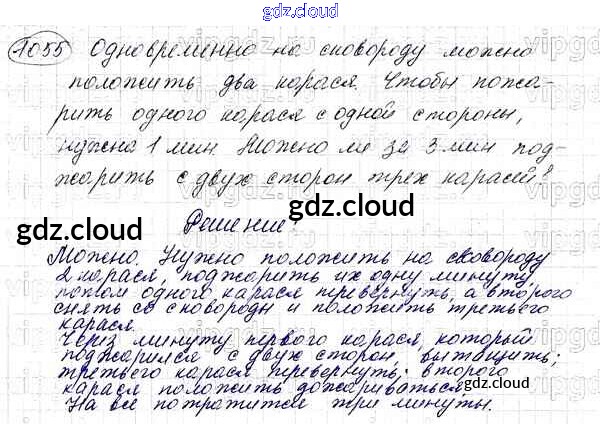 gdz.cloud
1055 Одновременно на сковороду можно
положить два карася. Чтобы пожа-
рить одного карася с одной стороны,
нужна 1 мин. Можно ли за 3 мин под-
жарить с двух сторон трех карасей?
gdz.cloud
gdz.cloud
Решение:
Можно. Нужно положить на сковороду
2 карася, поджарить их одну минуту
потом одного карася перевернуть, а второго
снять со сковороды и положить третьего
карася.
Через минуту первого карася, который
поджарился с двух сторон, вытащить;
третьего карася перевернуть; второго
карася положить дожариваться.
gdz.cloud
На все потратится три минуты.
gdz.cloud